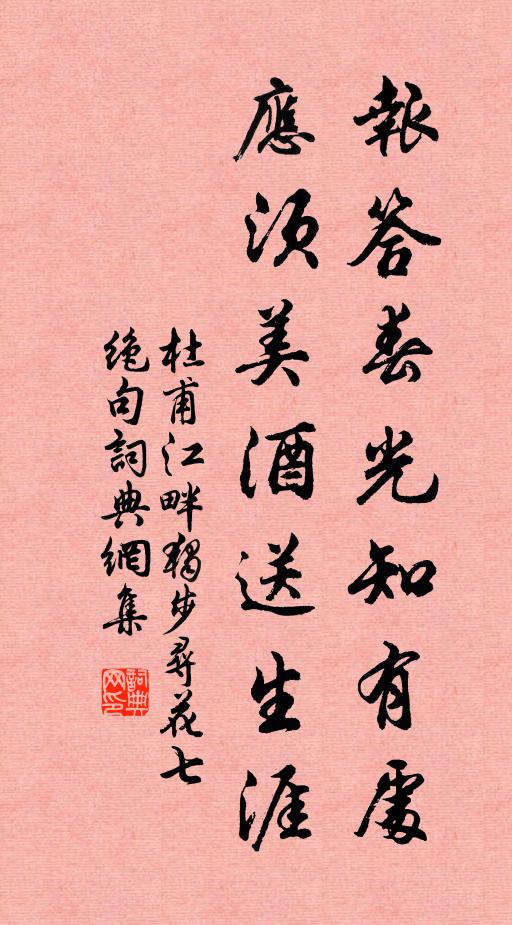 報答春光知有處
應須美酒送生涯
杜甫江畔獨步尋花七
絶句詞典網集
詞典网印